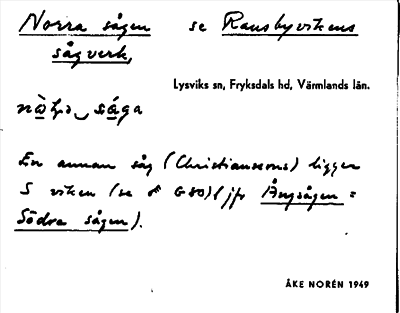 Norra sågen se Ransbyvikens
sågverk,
Lysviks sn, Fryksdals hd, Värmlands län.
sága
En annan såg (Christianssons) ligger
S viken (se G80) (jfr Ångsågen =
Södra sågen).
ÅKE NORÉN 1949